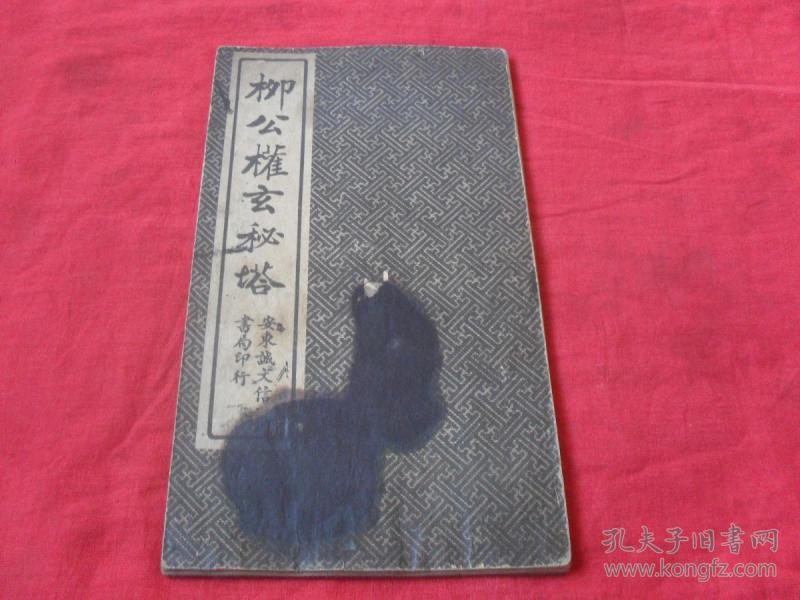 柳公權玄秘塔
安東誠文信
書局印行
孔夫子旧書网
www.kongfz.com